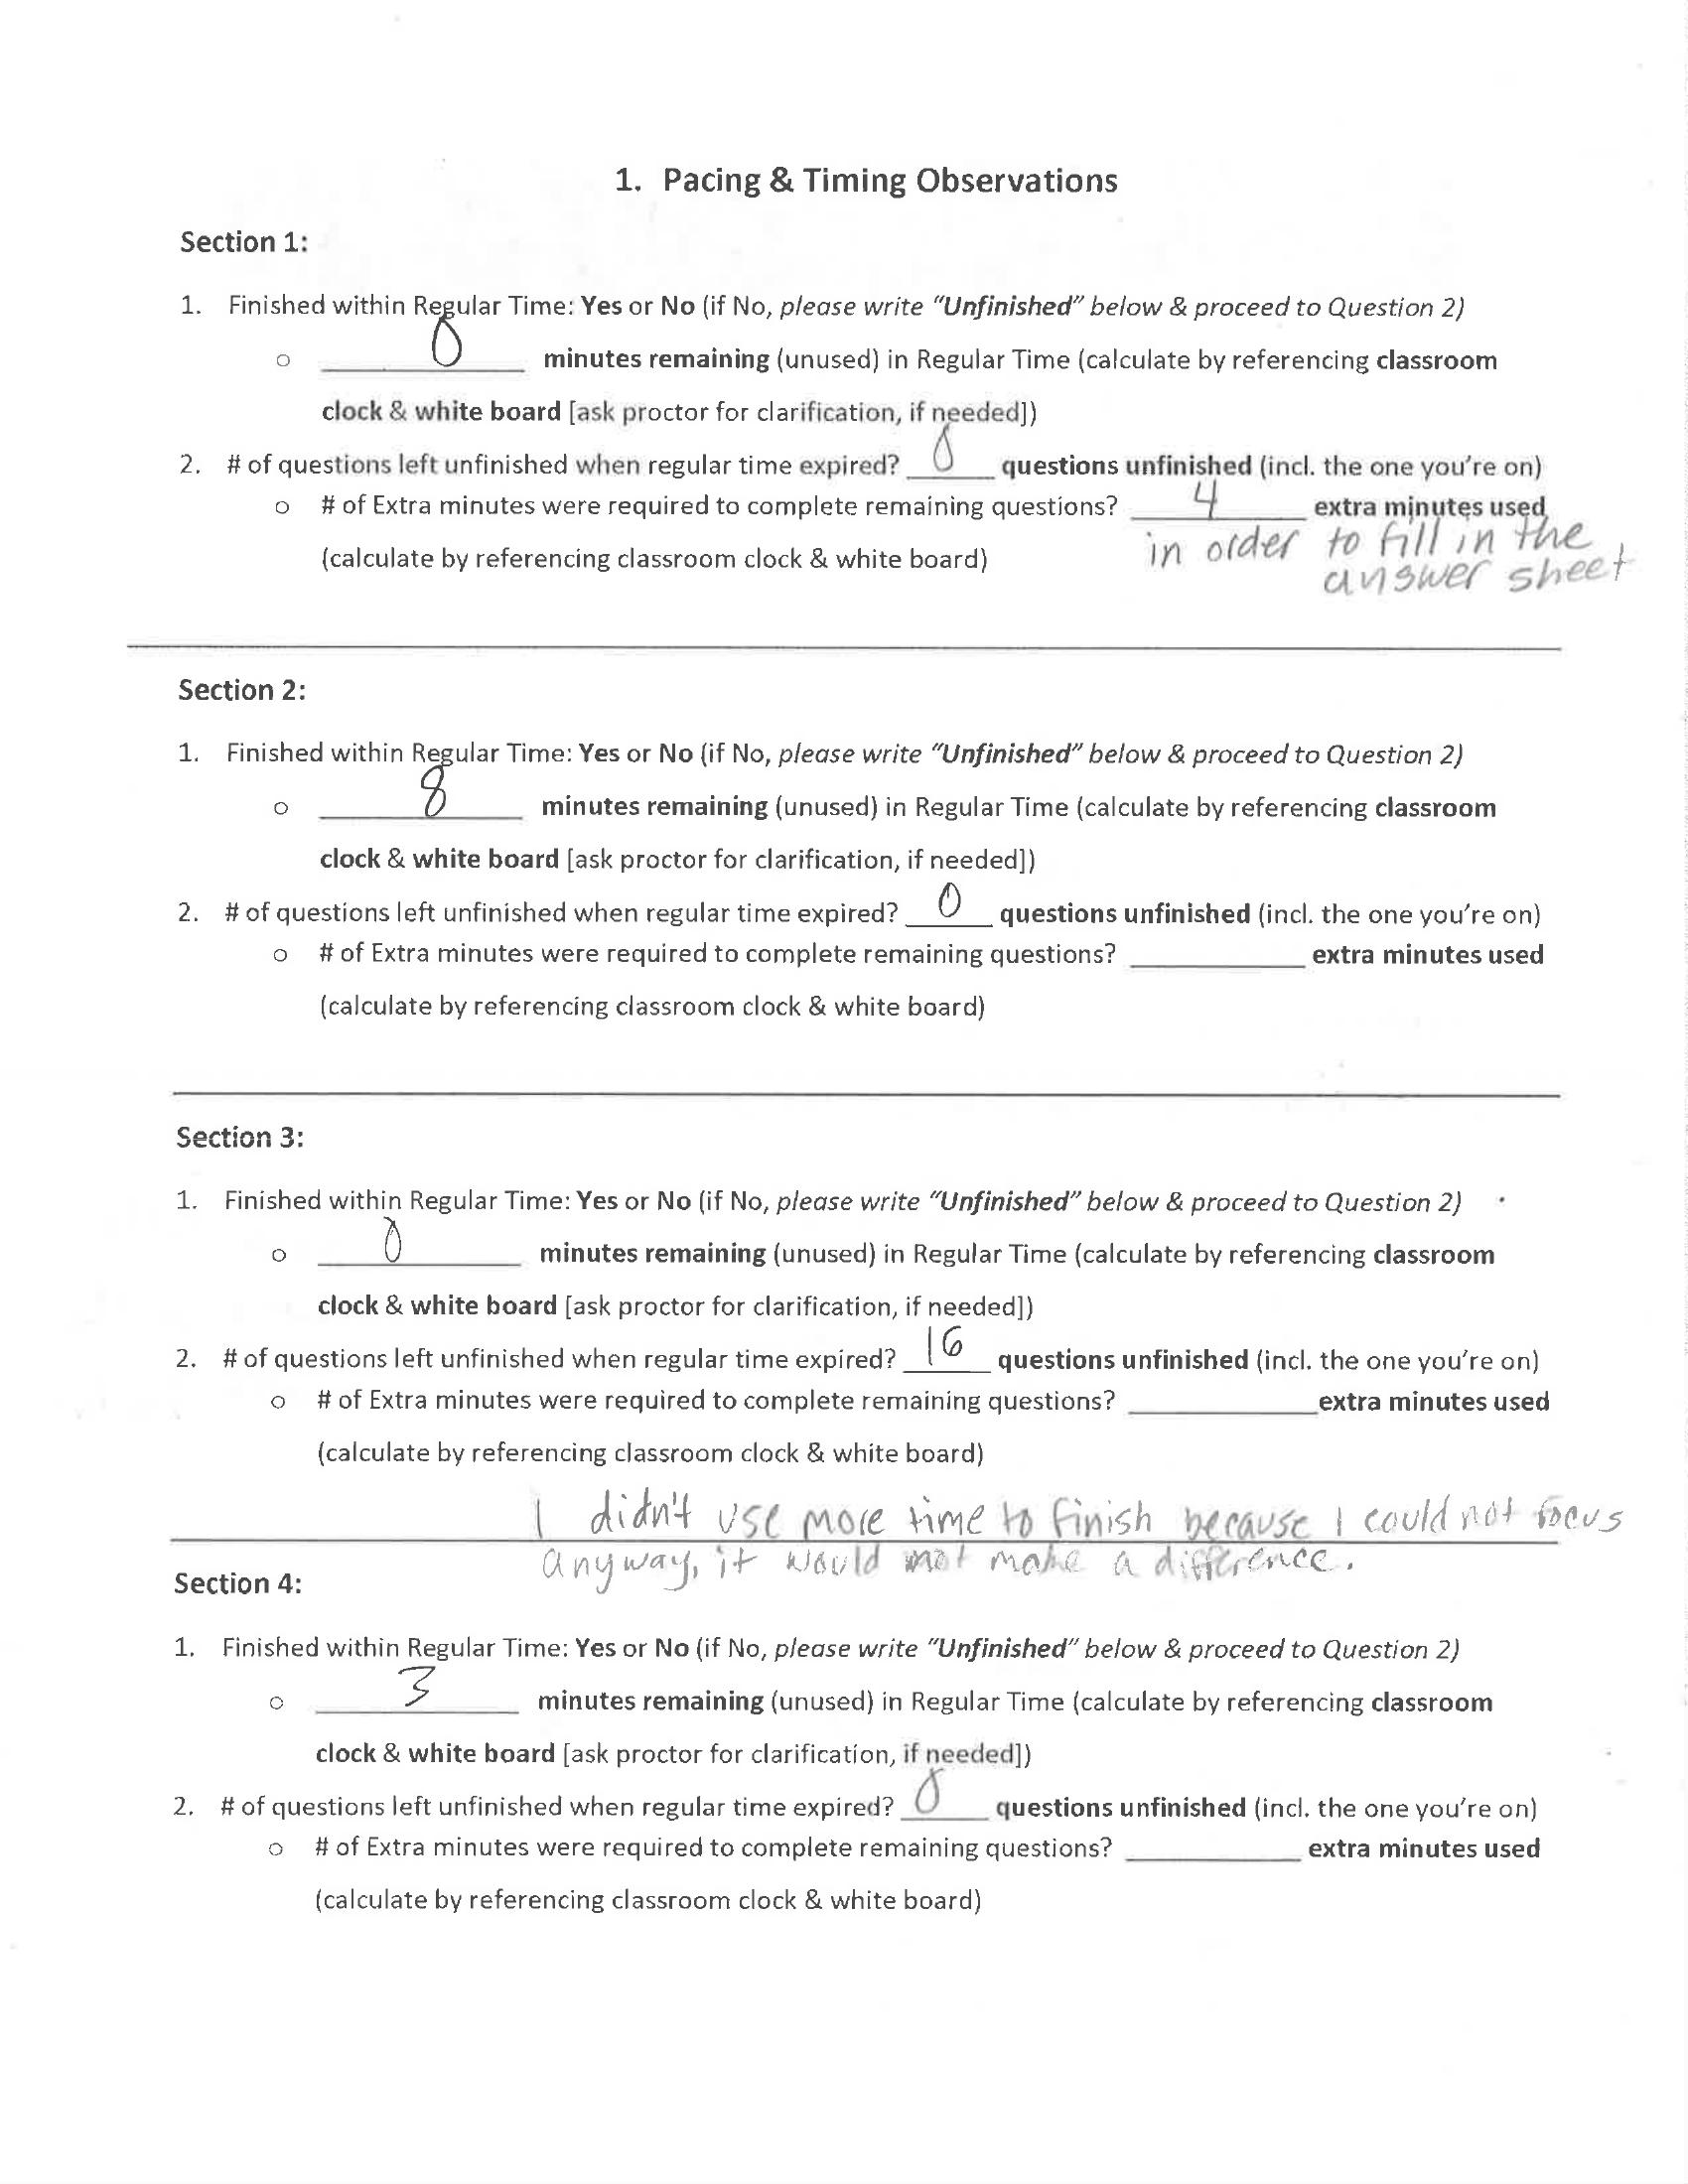 1. Pacing & Timing Observations
Section 1:
1. Finished within Regular Time: Yes or No (if No, please write "Unfinished" below & proceed to Question 2)
o 0 minutes remaining (unused) in Regular Time (calculate by referencing classroom
clock & white board [ask proctor for clarification, if needed])
2. # of questions left unfinished when regular time expired? 0 questions unfinished (incl. the one you're on)
o # of Extra minutes were required to complete remaining questions? 4 extra minutes used
in order to fill in the
(calculate by referencing classroom clock & white board)
answer sheet
Section 2:
1. Finished within Regular Time: Yes or No (if No, please write "Unfinished" below & proceed to Question 2)
o 8 minutes remaining (unused) in Regular Time (calculate by referencing classroom
clock & white board [ask proctor for clarification, if needed])
2. # of questions left unfinished when regular time expired? 0 questions unfinished (incl. the one you're on)
o # of Extra minutes were required to complete remaining questions? ____ extra minutes used
(calculate by referencing classroom clock & white board)
Section 3:
1. Finished within Regular Time: Yes or No (if No, please write "Unfinished" below & proceed to Question 2)
o 0 minutes remaining (unused) in Regular Time (calculate by referencing classroom
clock & white board [ask proctor for clarification, if needed])
2. # of questions left unfinished when regular time expired? 16 questions unfinished (incl. the one you're on)
o # of Extra minutes were required to complete remaining questions? ____ extra minutes used
(calculate by referencing classroom clock & white board)
I didn't use more time to finish because I could not focus
anyway, it would not make a difference.
Section 4:
1. Finished within Regular Time: Yes or No (if No, please write "Unfinished" below & proceed to Question 2)
o 3 minutes remaining (unused) in Regular Time (calculate by referencing classroom
clock & white board [ask proctor for clarification, if needed])
2. # of questions left unfinished when regular time expired? 0 questions unfinished (incl. the one you're on)
o # of Extra minutes were required to complete remaining questions? ____ extra minutes used
(calculate by referencing classroom clock & white board)